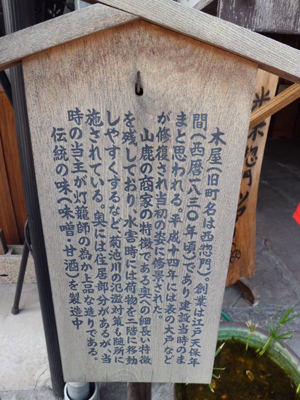 木屋(旧町名は西惣門)創業は江戸天保年
間(西暦一八三〇年頃)であり建設当時のま
まと思われる、平成十四年には表の大戸など
が修復され当初の姿に修景された。
山鹿の商家の特徴である奥への細長い特徴
を残しており、水害時には荷物を二階に移動
しやすくするなど、菊池川の氾濫対策も随所に
施されている。奥には住居部分があるが、当
時の当主が灯籠師の為か上品な造りである。
伝統の味(味噌・甘酒)を製造中
米惣門